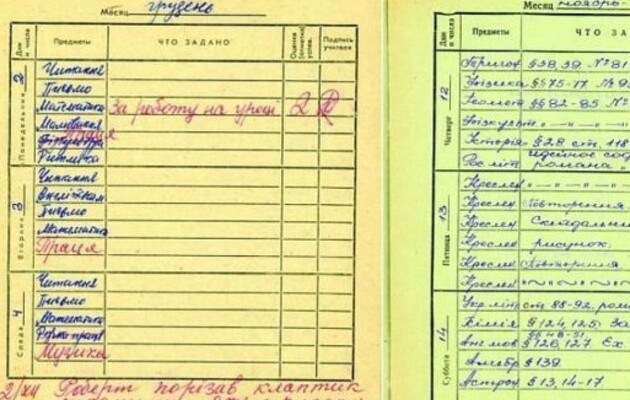 Месяц грудень
Дни и числа Предметы ЧТО ЗАДАНО Оценка (отметка) успев. Подпись учителя
Понедельник 2
Читання
Письмо
Математика За роботу на уроці 2
Малювання
праця
Ритміка
Вторник 3
Читання
Письмо
Математика
Праця
Среда 4
Читання
Письмо
Математика
Музика
2/XII Роберт порізав клаптик
Месяц ноябрь
Дни и числа Предметы ЧТО ЗА
Четверг 12
§ 38, 39 N° 81
Фізика §§ 75-77. N° 9
Геометр §§ 82-85 N°
Фізкульт
Історія § 28 ст. 118
Рос літ идейное сод
романа
Пятница 13
Креслен
Креслен Повторення
Креслен Складальни
Креслен рисунок.
Креслен Повторення
Креслен
Суббота 14
Укр літ ст 88-92, ром
Хімія § 124, 125. За
Анг мов § 126, 127. Ex
Алгебр § 139
Астрон § 13, 14-17